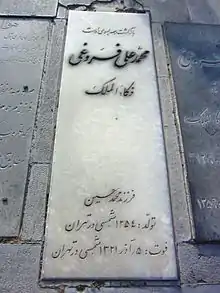 محمد علی فروغی
ذکاء الملک
فرزند محمد حسین
تولد: ۱۲۵۴ شمسی در تهران
فوت: ۵ آذر ۱۳۲۱ شمسی در تهران